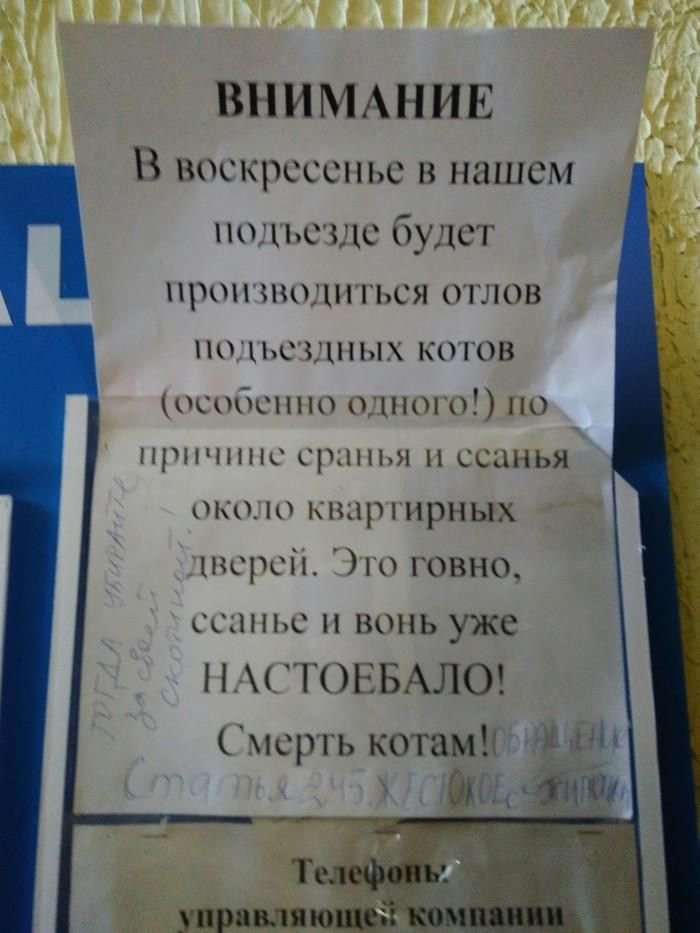 ВНИМАНИЕ
В воскресенье в нашем
подъезде будет
производиться отлов
подъездных котов
(особенно одного!) по
причине сранья и ссанья
около квартирных
дверей. Это говно,
ссанье и вонь уже
НАСТОЕБАЛО!
Смерть котам!
ОБРАЩЕНИЕ
Статья 245. ЖЕСТОКОЕ с
ТОГДА УБИРАЙТЕ
за своей
скотиной!
Телефоны
управляющей компании